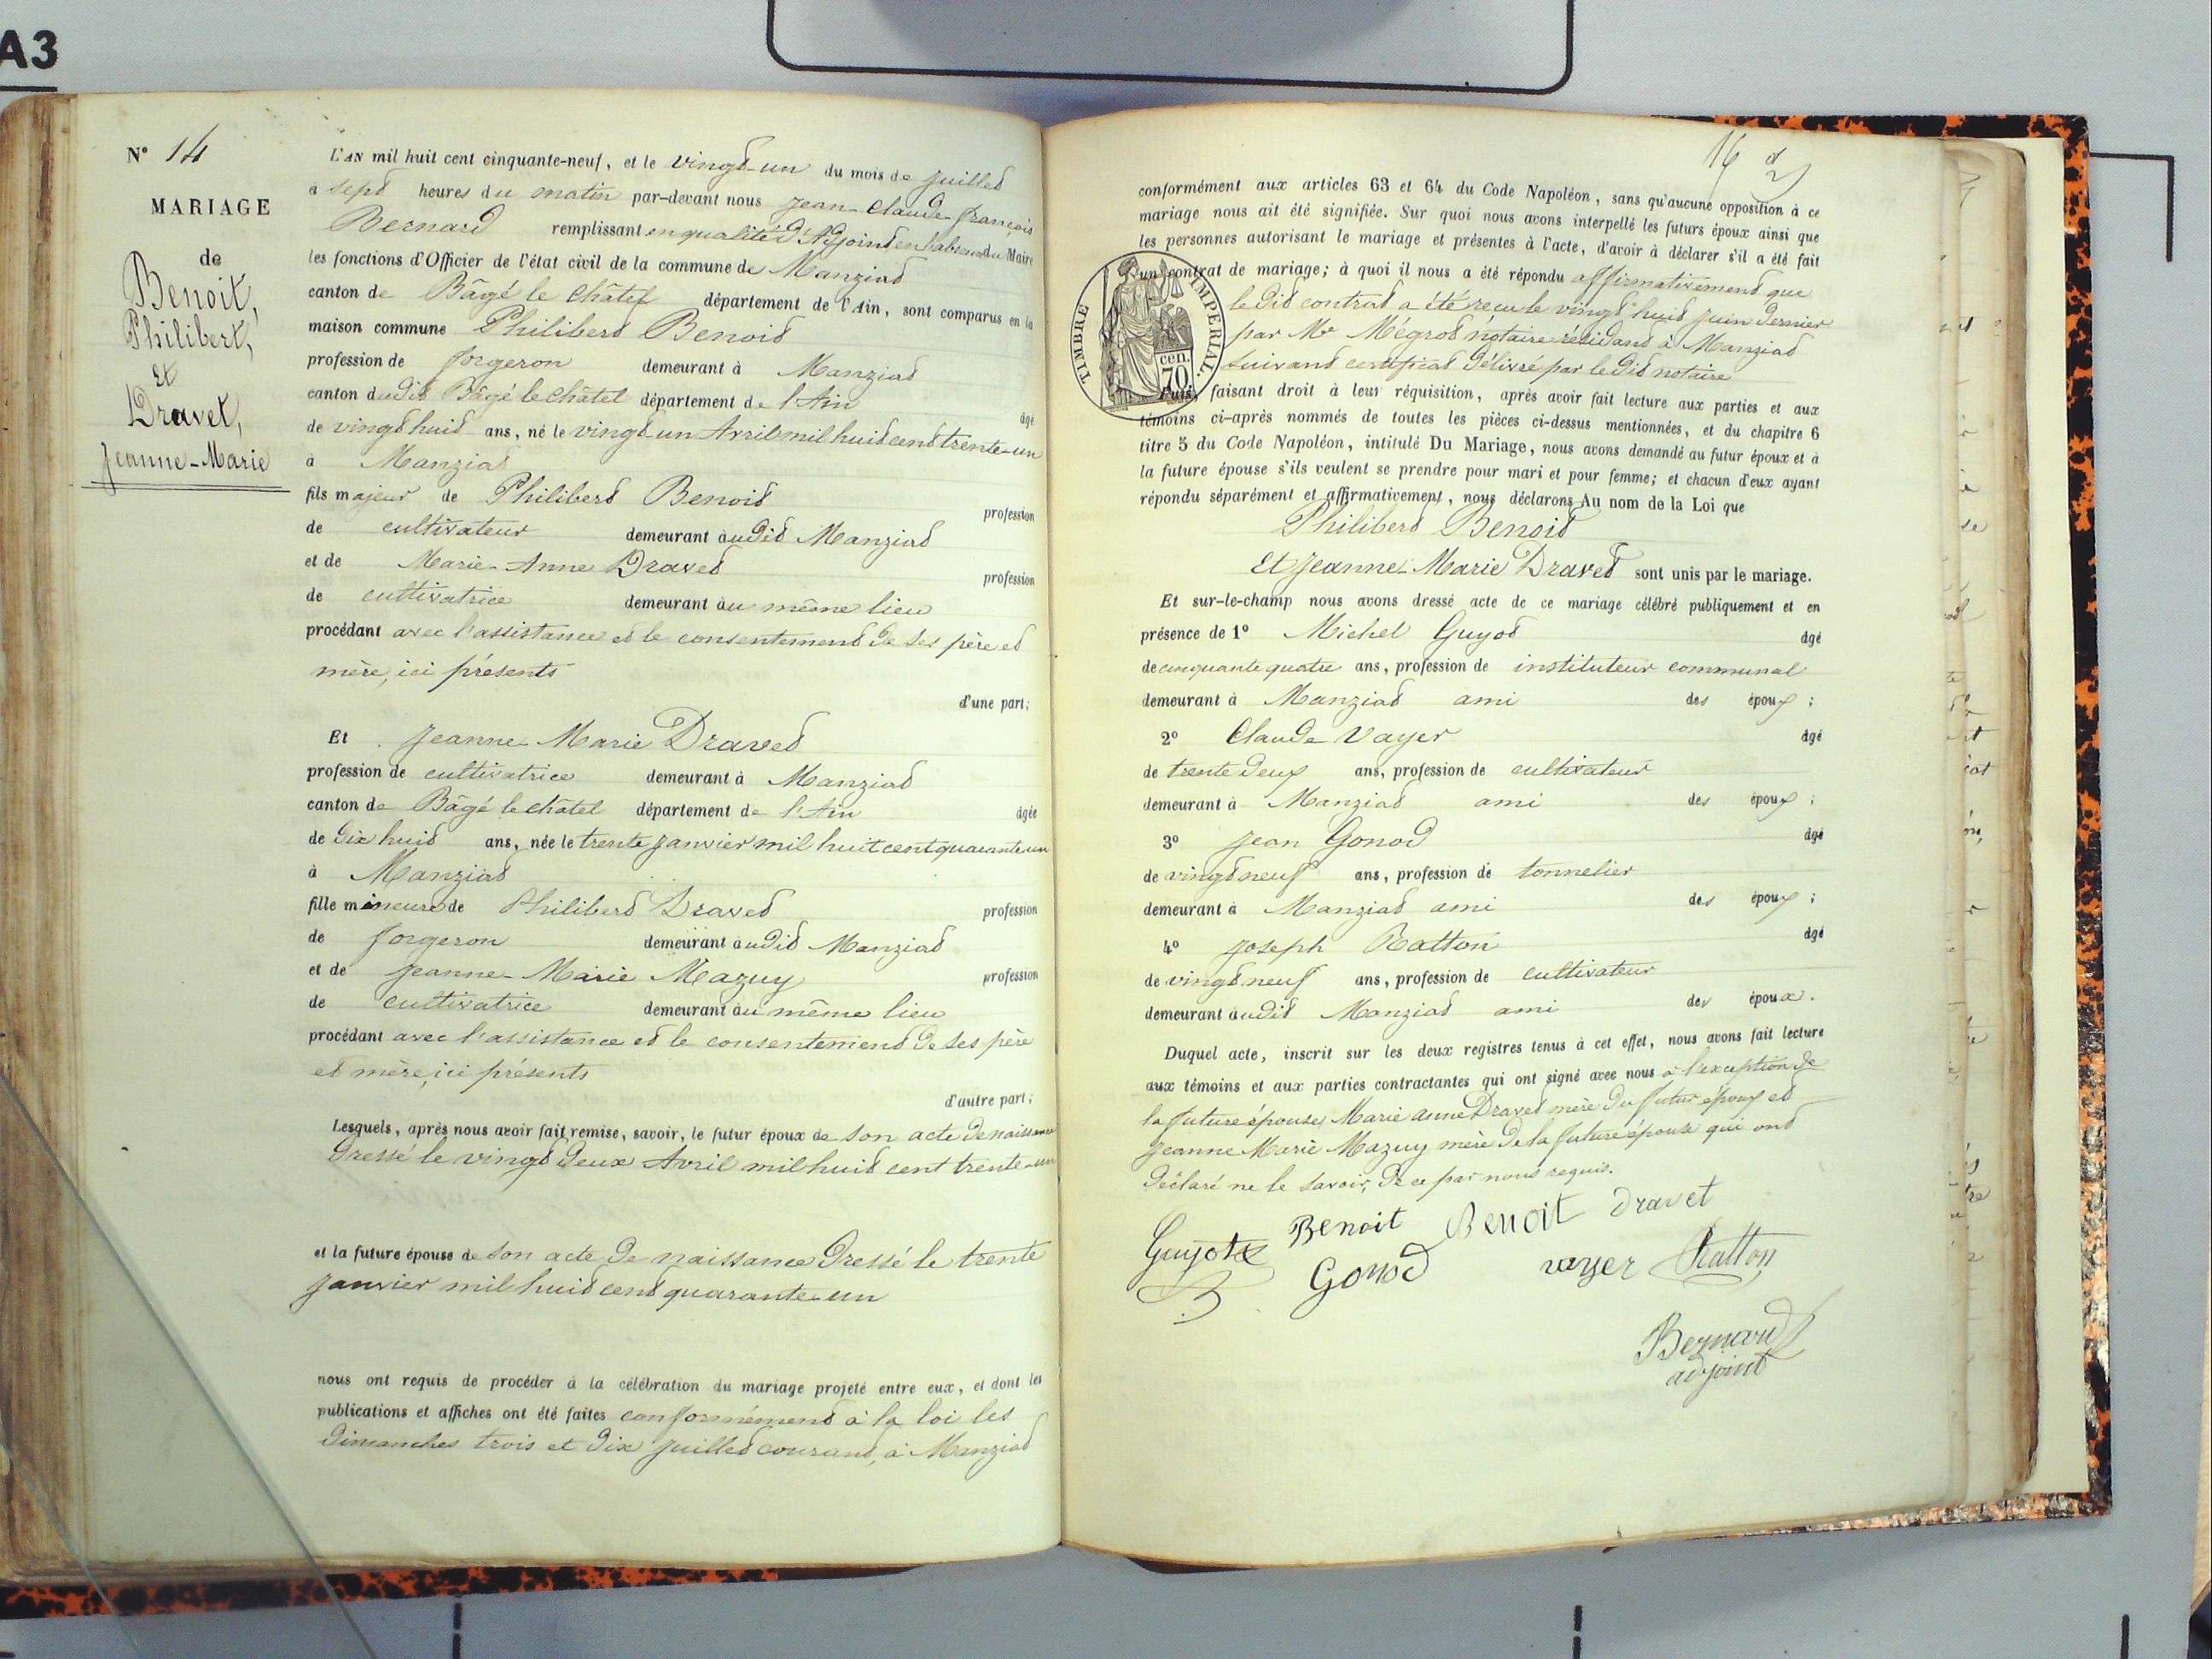 A3
N° 14
MARIAGE
de
Benoit,
Philibert,
Et
Dravet,
Jeanne-Marie
L'AN mil huit cent cinquante-neuf, et le vingt-un du mois de juillet
à sept heures du matin par-devant nous Jean-Claude-François
Bernard remplissant en qualité d'Adjoint en l'absence du Maire
les fonctions d'Officier de l'état civil de la commune de Manziat
canton de Bâgé le Châtel département de l'Ain, sont comparus en la
maison commune Philibert Benoit
profession de forgeron demeurant à Manziat
canton dudit Bâgé le Châtel département de l'Ain âgé
de vingt huit ans, né le vingt-un Avril mil huit cent trente-un
à Manziat
fils majeur de Philibert Benoit profession
de cultivateur demeurant audit Manziat
et de Marie-Anne Dravet profession
de cultivatrice demeurant au même lieu
procédant avec l'assistance et le consentement de ses père et
mère, ici présents
d'une part;
Et Jeanne-Marie Dravet
profession de cultivatrice demeurant à Manziat
canton de Bâgé le Châtel département de l'Ain âgée
de dix huit ans, née le trente janvier mil huit cent quarante un
à Manziat
fille mineure de Philibert Dravet profession
de forgeron demeurant audit Manziat
et de Jeanne-Marie Mazuy profession
de cultivatrice demeurant au même lieu
procédant avec l'assistance et le consentement de ses père
et mère, ici présents
d'autre part;
Lesquels, après nous avoir fait remise, savoir, le futur époux de son acte de naissance
dressé le vingt deux Avril mil huit cent trente-un
et la future épouse de son acte de naissance dressé le trente
janvier mil huit cent quarante-un
nous ont requis de procéder à la célébration du mariage projeté entre eux, et dont les
publications et affiches ont été faites conformément à la loi les
dimanches trois et dix juillet courant, à Manziat
16
conformément aux articles 63 et 64 du Code Napoléon, sans qu'aucune opposition à ce
mariage nous ait été signifiée. Sur quoi nous avons interpellé les futurs époux ainsi que
les personnes autorisant le mariage et présentes à l'acte, d'avoir à déclarer s'il a été fait
un contrat de mariage; à quoi il nous a été répondu affirmativement que
le dit contrat a été reçu le vingt huit juin dernier
par Me Mégrot notaire résidant à Manziat
suivant certificat délivré par le dit notaire
TIMBRE IMPERIAL.
cen.
70
Puis, faisant droit à leur réquisition, après avoir fait lecture aux parties et aux
témoins ci-après nommés de toutes les pièces ci-dessus mentionnées, et du chapitre 6
titre 5 du Code Napoléon, intitulé Du Mariage, nous avons demandé au futur époux et à
la future épouse s'ils veulent se prendre pour mari et pour femme; et chacun d'eux ayant
répondu séparément et affirmativement, nous déclarons Au nom de la Loi que
Philibert Benoit
Et Jeanne-Marie Dravet sont unis par le mariage.
Et sur-le-champ nous avons dressé acte de ce mariage célébré publiquement et en
présence de 1° Michel Guyot âgé
de cinquante quatre ans, profession de instituteur communal
demeurant à Manziat ami des époux;
2° Claude Vayer âgé
de trente deux ans, profession de cultivateur
demeurant à Manziat ami des époux;
3° Jean Gonod âgé
de vingt neuf ans, profession de tonnelier
demeurant à Manziat ami des époux;
4° Joseph Ratton âgé
de vingt neuf ans, profession de cultivateur
demeurant audit Manziat ami des époux.
Duquel acte, inscrit sur les deux registres tenus à cet effet, nous avons fait lecture
aux témoins et aux parties contractantes qui ont signé avec nous à l'exception de
la future épouse, Marie Anne Dravet mère du futur époux et
Jeanne Marie Mazuy mère de la future épouse qui ont
déclaré ne le savoir, de ce par nous requis.
Guyot Benoit Benoit Dravet
Gonod vayer Ratton
Bernard
adjoint